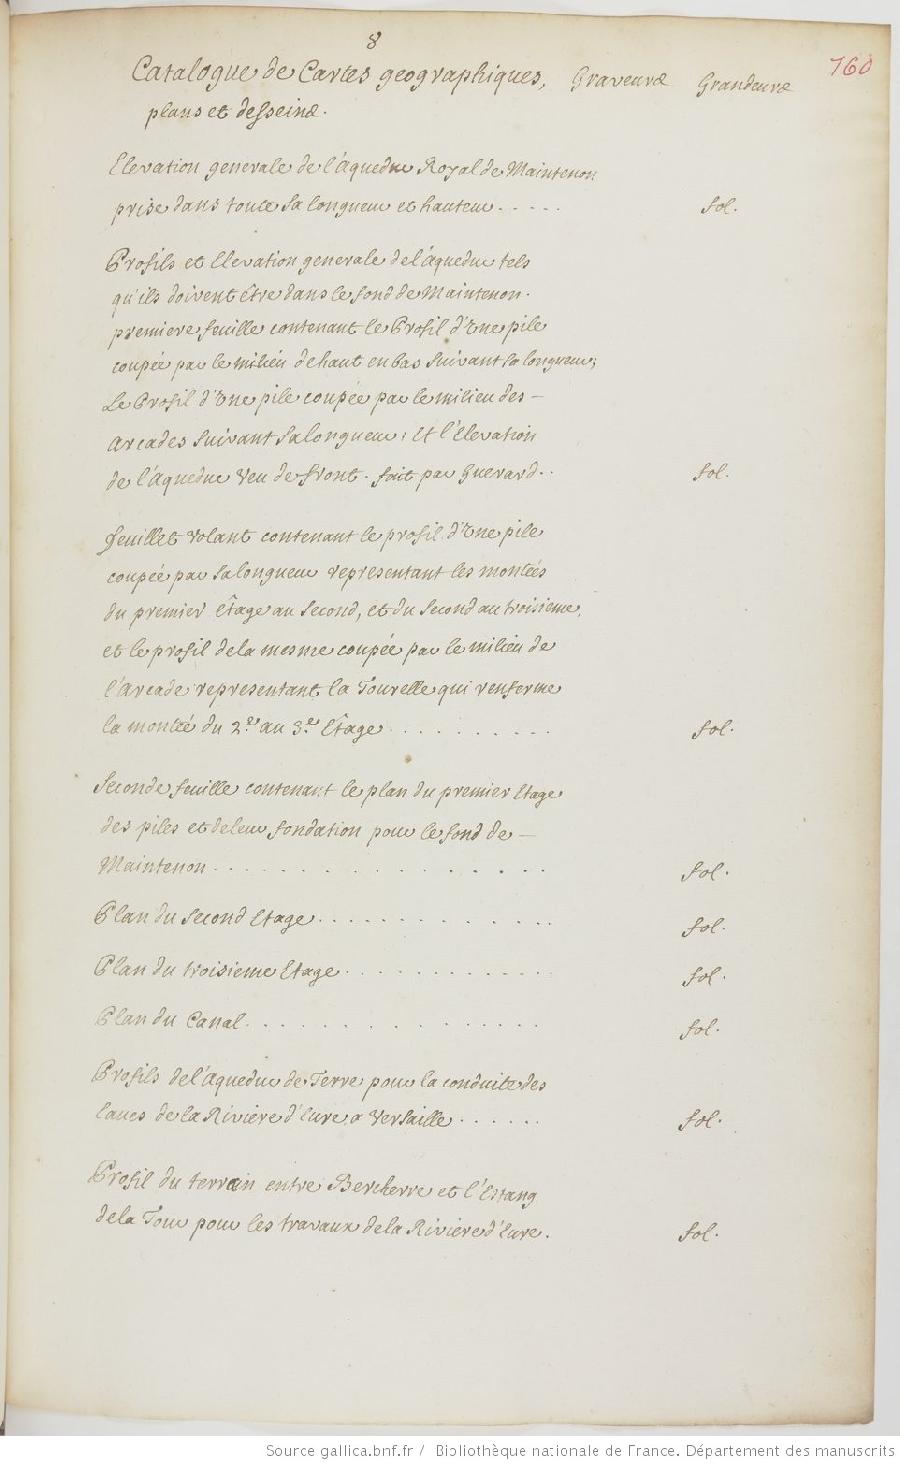 8
760
Catalogue de Cartes geographiques, Graveurs Grandeurs
plans et desseins.
Elevation generale de l'Aqueduc Royal de Maintenon
prise dans toute sa longueur et hauteur . . . . . fol.
Profils et Elevation generale de l'aqueduc tels
qu'ils doivent être dans le fond de Maintenon.
premiere feuille contenant le Profil d'Une pile
coupée par le milieu de haut en bas suivant sa longueur;
Le Profil d'Une pile coupée par le milieu des –
arcades suivant sa longueur; Et l'Elevation
de l'Aqueduc Veu de front. fait par Guerard. . fol.
feuillet Volant contenant le profil d'Une pile
coupée par sa longueur representant les montées
du premier Êtage au second, et du second au troisieme,
et le profil de la mesme coupée par le milieu de
l'Arcade representant la Tourelle qui renferme
la montée du 2.e au 3.e Êtage . . . . . . . . . fol.
Seconde feuille contenant le plan du premier Etage
des piles et de leur fondation pour le fond de –
Maintenon . . . . . . . . . . . . . fol.
Plan du second Etage . . . . . . . . . . . . fol.
Plan du troisieme Etage . . . . . . . . . . . fol.
Plan du Canal . . . . . . . . . . . . . fol.
Profils de l'Aqueduc de Terre pour la conduite des
Eaues de la Riviere d'Eure a Versaille . . . . . . fol.
Profil du terrain entre Bercherre et l'Estang
de la Tour pour les travaux de la Riviere d'Eure. fol.
Source gallica.bnf.fr / Bibliothèque nationale de France. Département des manuscrits